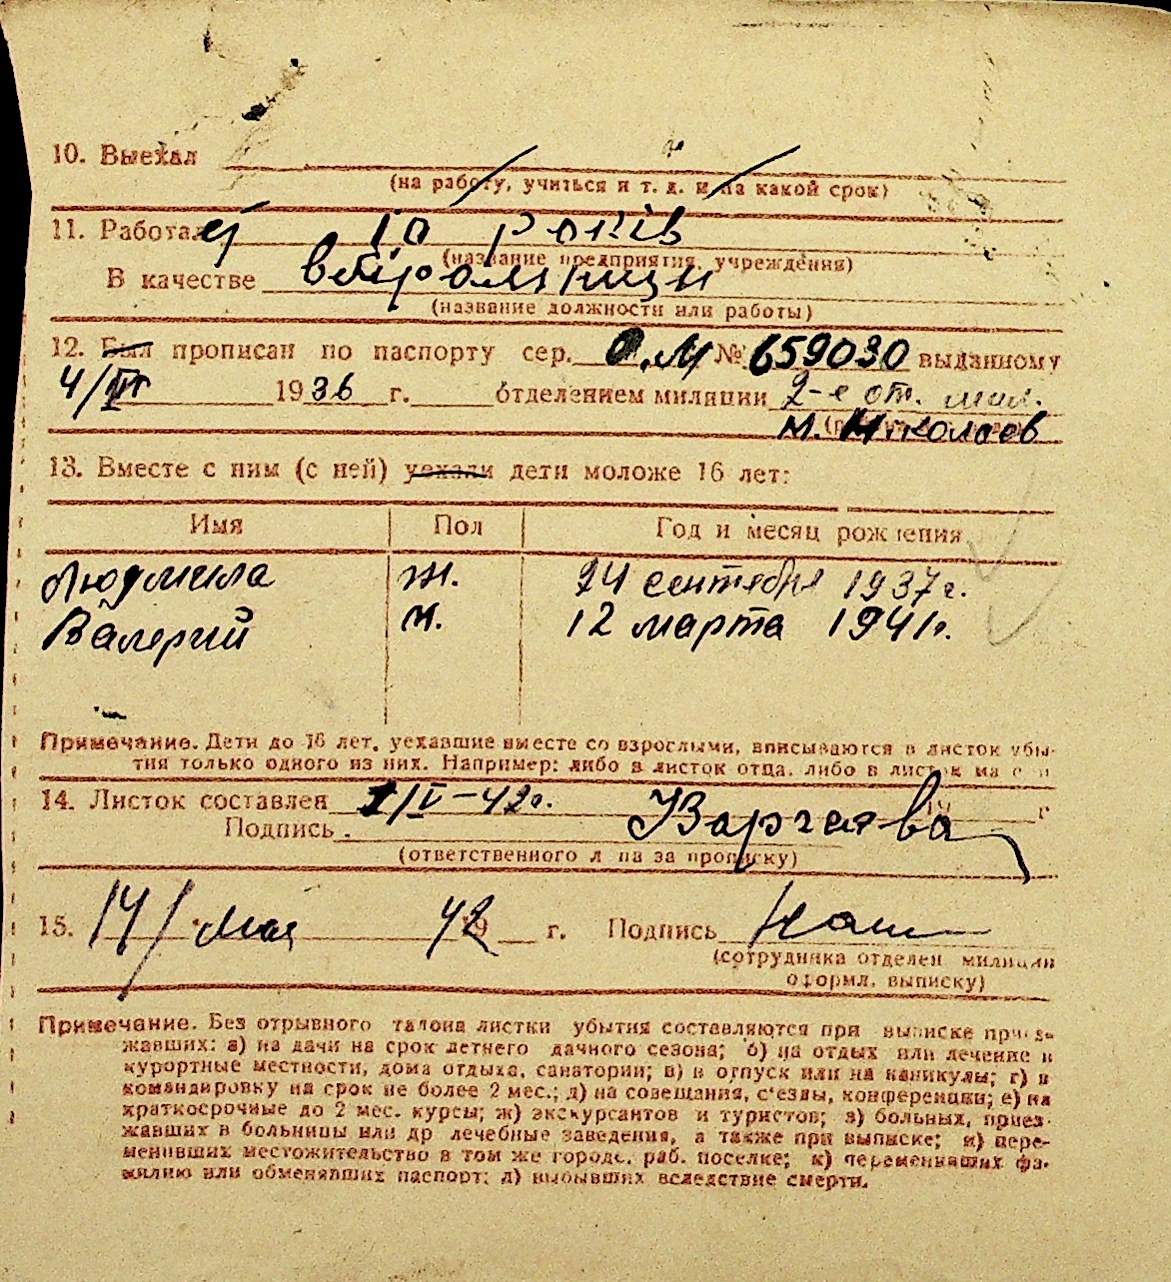 10. Выехал
(на работу, учиться и т. д. и на какой срок)
11. Работал 10 років
(название предприятия, учреждения)
В качестве
(название должности или работы)
12. Был прописан по паспорту сер. О.М № 659030 выданному
4/III 1936 г. отделением милиции 2-е от. мил.
м. Николаев
13. Вместе с ним (с ней) уехали дети моложе 16 лет:
Имя Пол Год и месяц рождения
Людмила ж. 24 сентября 1937 г.
Валерий м. 12 марта 1941 г.
Примечание. Дети до 16 лет, уехавшие вместе со взрослыми, вписываются в листок убы-
тия только одного из них. Например: либо в листок отца, либо в листок
14. Листок составлен 1/V-42 г. г
Подпись
(ответственного лица за прописку)
15. 14/ мая 42 г. Подпись
(сотрудника отделен милиции
оформл. выписку)
Примечание. Без отрывного талона листки убытия составляются при выписке приез-
жавших: а) на дачи на срок летнего дачного сезона; б) на отдых или лечение в
курортные местности, дома отдыха, санатории; в) в отпуск или на каникулы; г) в
командировку на срок не более 2 мес.; д) на совещания, с'езды, конференции; е) на
краткосрочные до 2 мес. курсы; ж) экскурсантов и туристов; з) больных, приез-
жавших в больницы или др лечебные заведения, а также при выписке; и) пере-
менивших местожительство в том же городе, раб. поселке; к) переменивших фа-
милию или обменявших паспорт; л) выбывших вследствие смерти.